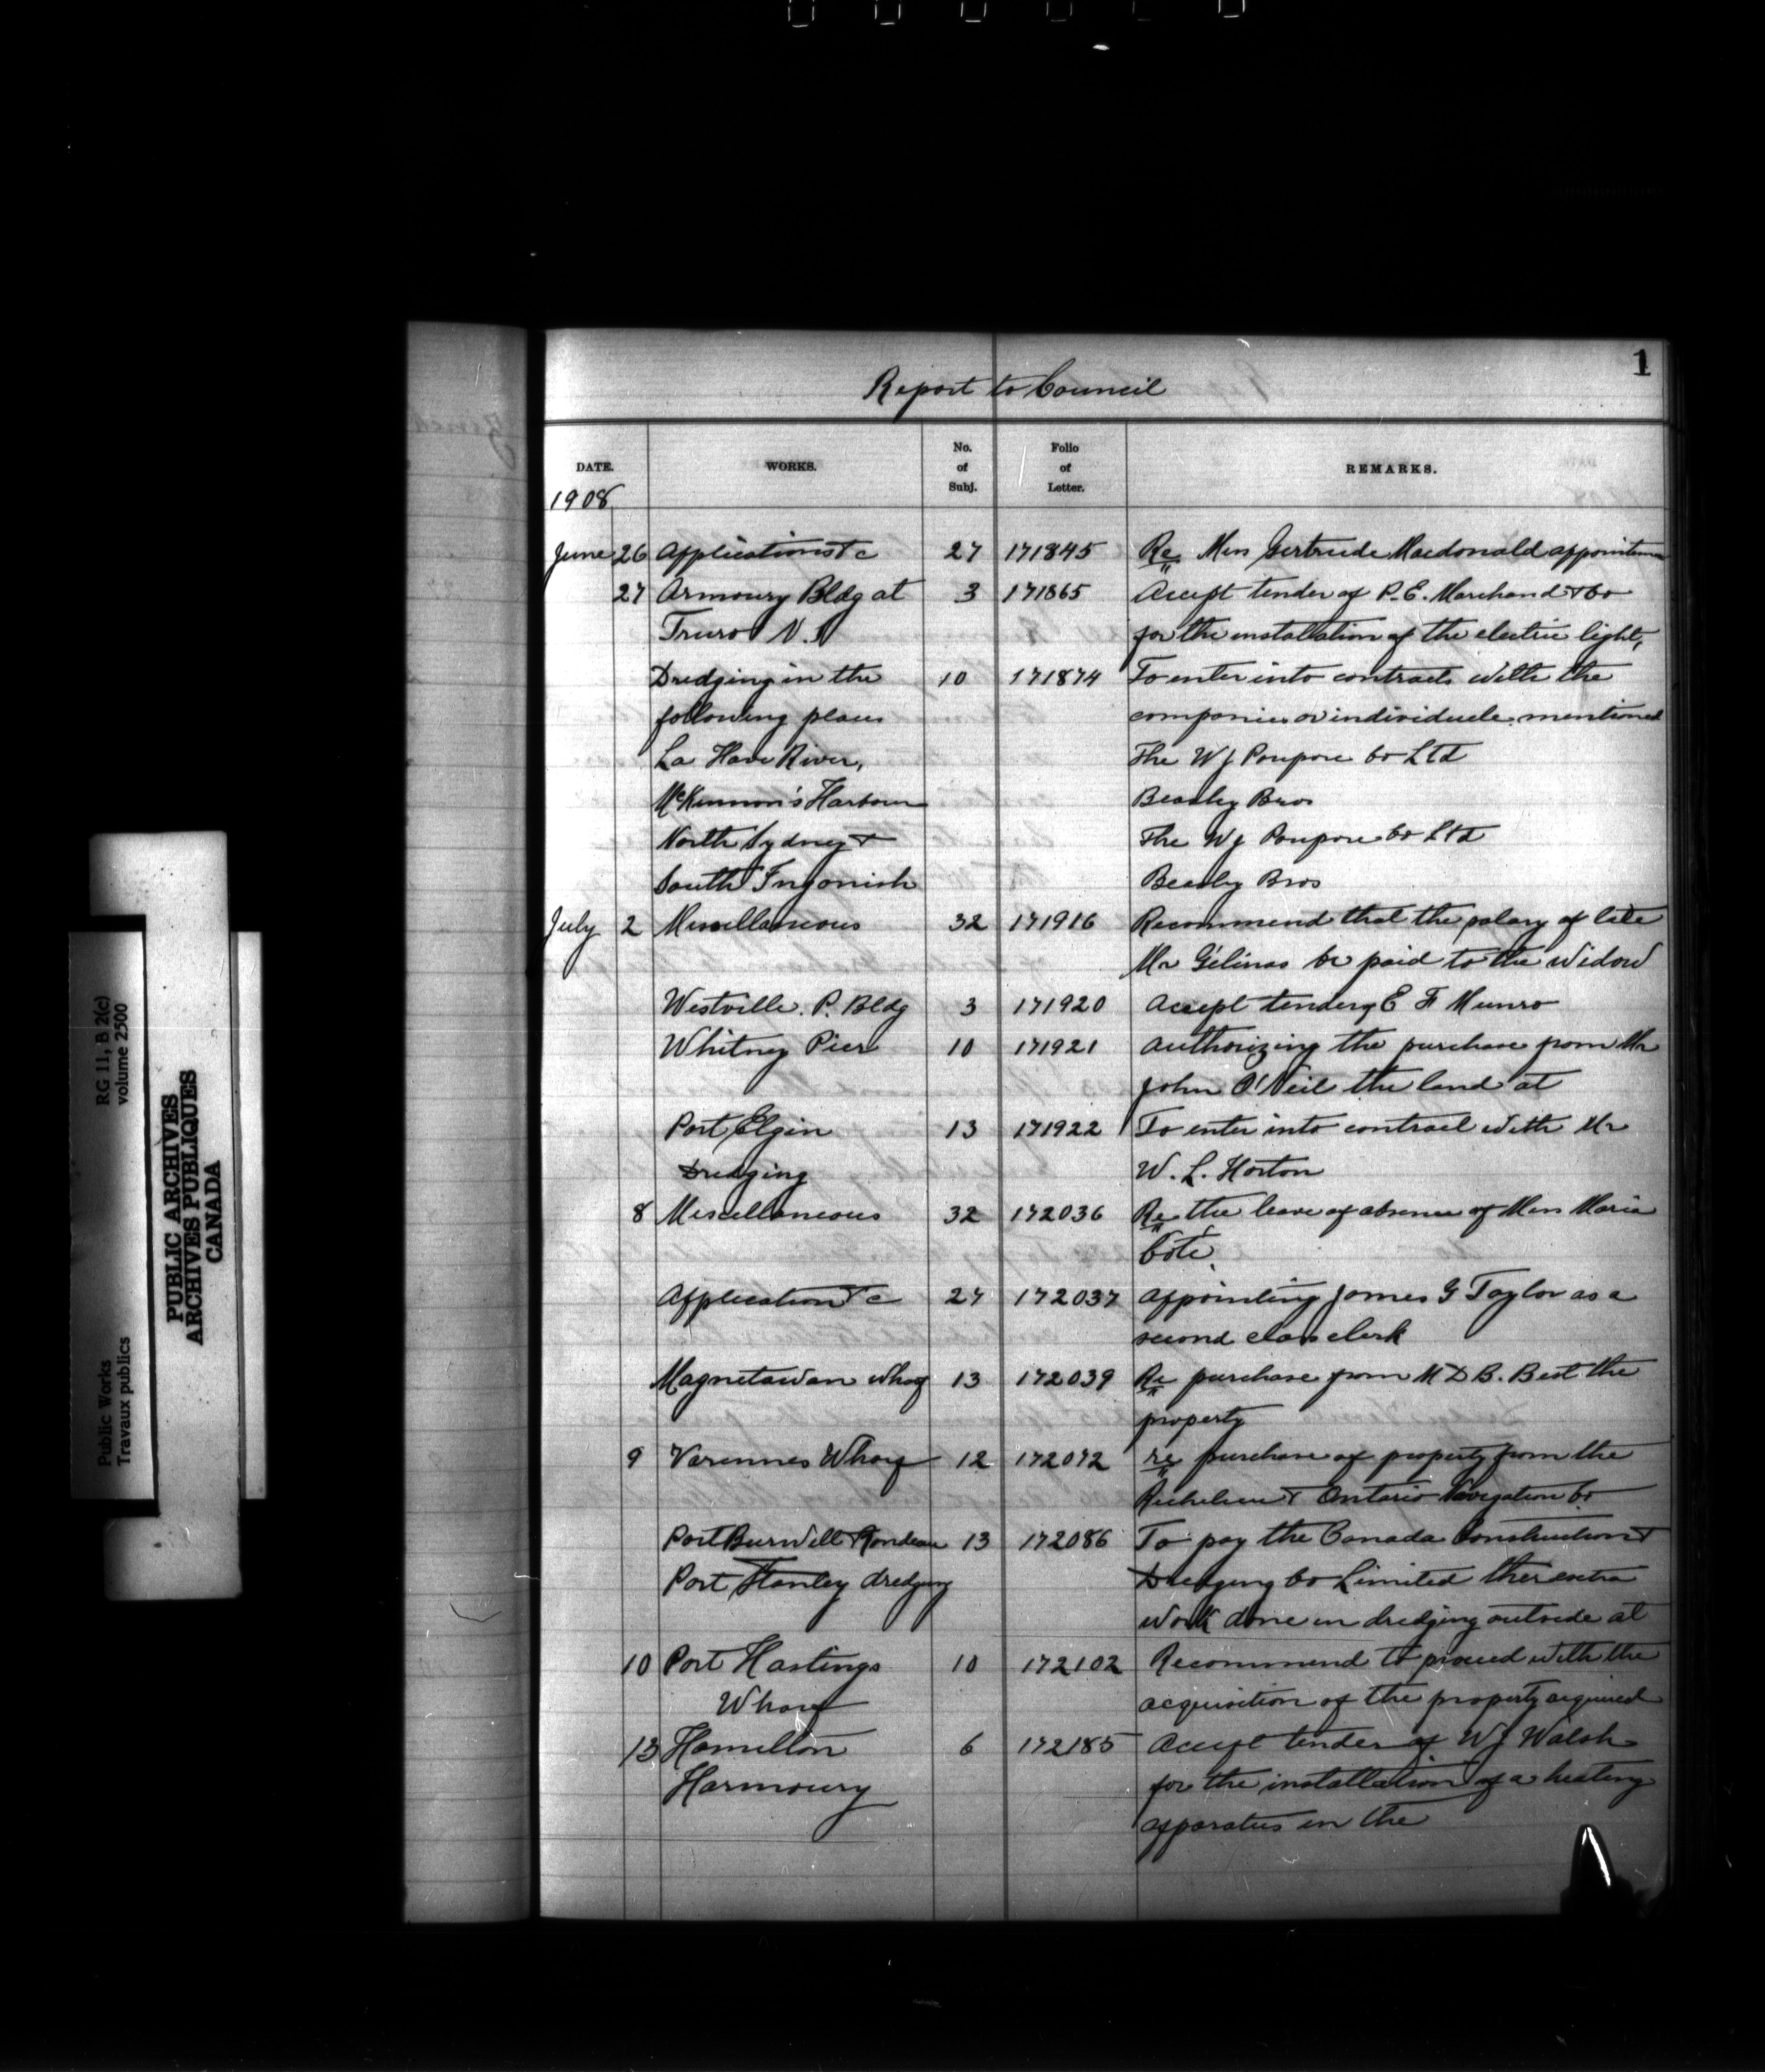 1
Report to Council
DATE. WORKS. No. of Subj. Folio of Letter. REMARKS.
1908
June 26 Applications &c 27 171845 Re Miss Gertrude Macdonald appointment
27 Armoury Bldg at 3 171865 Accept tender of P. E. Marchand & Co
Truro N.S for the installation of the electric light,
Dredging in the 10 171874 To enter into contracts with the
following places companies or individuels mentioned
La Have River, The W J Poupore Co Ltd
McKinnon's Harbour Beasley Bros
North Sydney & The W J Poupore Co Ltd
South Ingonish Beasley Bros
July 2 Miscellaneous 32 171916 Recommend that the salary of late
Mr Gélinas be paid to the Widow
Westville. P. Bldg 3 171920 Accept tender of E F Munro
Whitney Pier 10 171921 Authorizing the purchase from Mr
John O'Neil the land at
Port Elgin 13 171922 To enter into contract with Mr
Dredging W. L. Horton
8 Miscellaneous 32 172036 Re the leave of absence of Miss Maria
Coté.
Application &c 27 172037 Appointing James G Taylor as a
second class clerk
Magnetawan Wharf 13 172039 Re purchase from M D B. Best the
property
9 Varennes Wharf 12 172072 re purchase of property from the
Richelieu & Ontario Navigation Co
Port Burwell & Rondeau 13 172086 To pay the Canada Construction &
Port Stanley dredging Dredging Co Limited ther extra
work done in dredging outside at
10 Port Hastings 10 172102 Recommend to proceed with the
Wharf acquisition of the property acquired
13 Hamilton 6 172185 Accept tender of W J Walsh
Harmoury for the installation of a heating
apparatus in the
Public Works RG 11, B 2(c)
Travaux publics volume 2500
PUBLIC ARCHIVES
ARCHIVES PUBLIQUES
CANADA